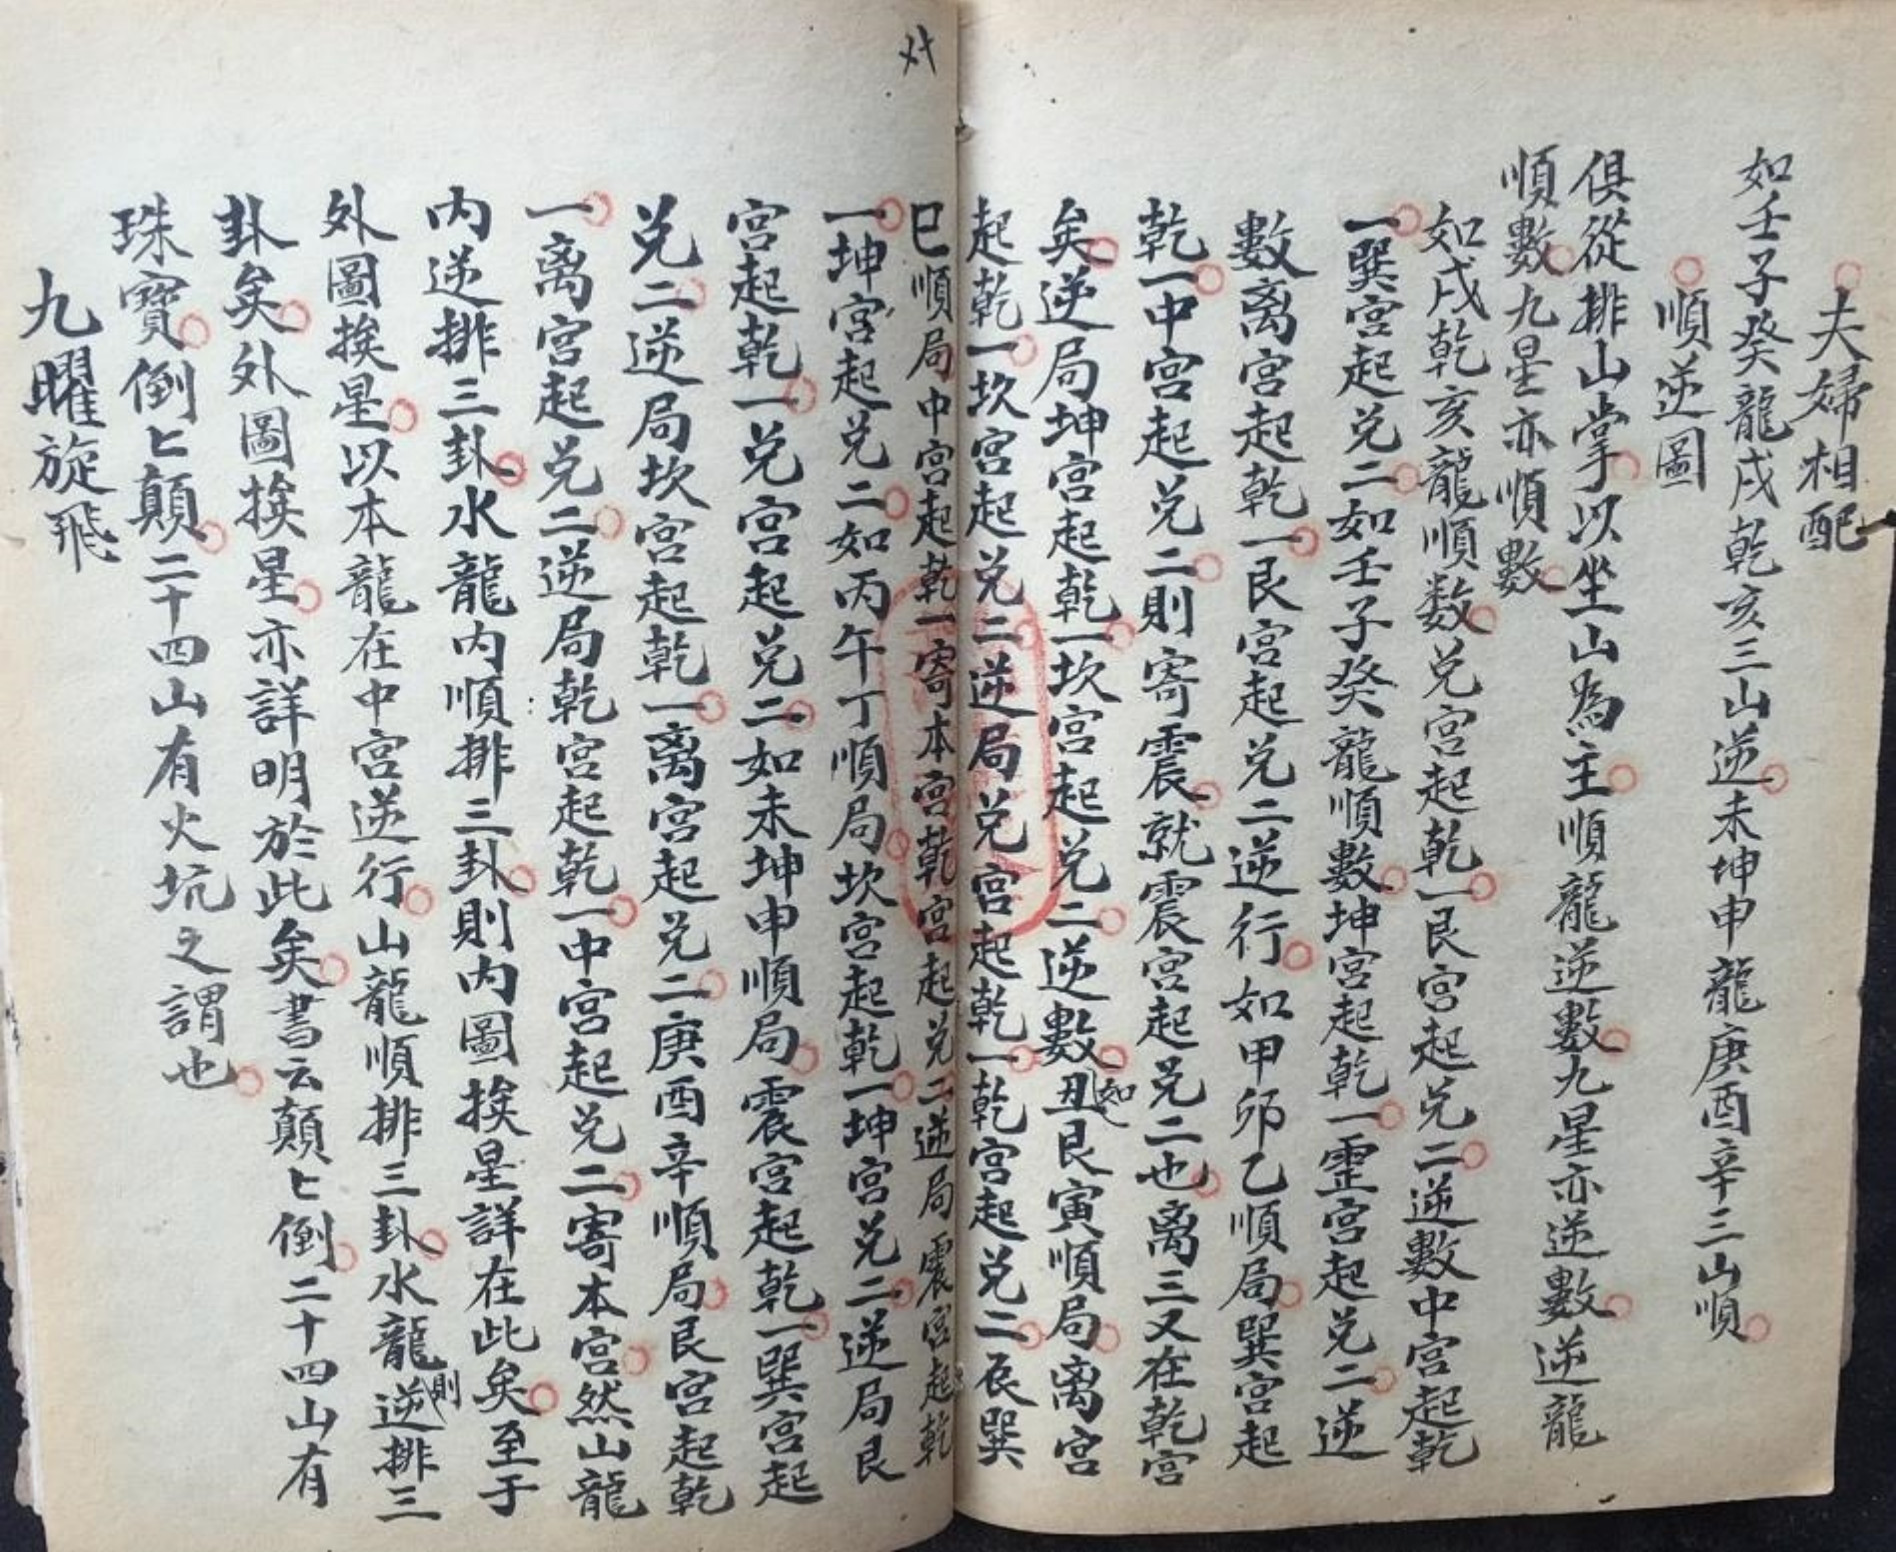 夫婦相配
如壬子癸龍戌乾亥三山逆未坤申龍庚酉辛三山順
順逆圖
俱從排山掌以坐山為主順龍逆數九星亦逆數逆龍
順數九星亦順數
如戌乾亥龍順数兑宮起乾一艮宮起兑二逆數中宮起乾
一巽宮起兑二如壬子癸龍順數坤宮起乾一𫝑宮起兑二逆
數离宮起乾一艮宮起兑二逆行如甲卯乙順局巽宮起
乾一中宮起兑二則寄震就震宮起兑二也离三又在乾宮
矣逆局坤宮起乾一坎宮起兑二逆數如丑艮寅順局离宮
起乾一坎宮起兑二逆局兑宮起乾一乾宮起兑二辰巽
巳順局中宮起乾一寄本宮乾宮起兑二逆局震宮起乾
一坤宮起兑二如丙午丁順局坎宮起乾一坤宮兑二逆局艮
宮起乾一兑宮起兑二如未坤申順局震宮起乾一巽宮起
兑二逆局坎宮起乾一离宮起兑二庚酉辛順局艮宮起乾
一离宮起兑二逆局乾宮起乾一中宮起兑二寄本宮然山龍
内逆排三卦水龍内順排三卦則内圖挨星詳在此矣至于
外圖挨星以本龍在中宮逆行山龍順排三卦水龍則逆排三
卦矣外圖挨星亦詳明於此矣書云顛匕倒二十四山有
珠寶倒匕顛二十四山有火坑之謂也
九曜旋飛